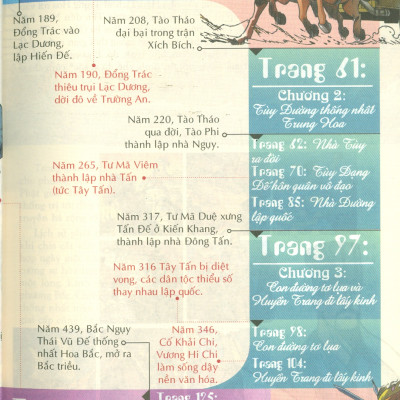 Năm 189,
Đổng Trác vào
Lạc Dương,
lập Hiến Đế.
Năm 208, Tào Tháo
đại bại trong trận
Xích Bích.
Năm 190, Đổng Trác
thiêu trụi Lạc Dương,
dời đô về Trường An.
Năm 220, Tào Tháo
qua đời, Tào Phi
thành lập nhà Ngụy.
Năm 265, Tư Mã Viêm
thành lập nhà Tấn
(tức Tây Tấn).
Năm 317, Tư Mã Duệ xưng
Tấn Đế ở Kiến Khang,
thành lập nhà Đông Tấn.
Năm 316 Tây Tấn bị diệt
vong, các dân tộc thiểu số
thay nhau lập quốc.
Năm 439, Bắc Ngụy
Thái Vũ Đế thống
nhất Hoa Bắc, mở ra
Bắc triều.
Năm 346,
Cố Khải Chi,
Vương Hi Chi
làm sống dậy
nền văn hóa.
Trang 61:
Chương 2:
Tùy Đường thống nhất
Trung Hoa
Trang 62: Nhà Tùy
ra đời
Trang 70: Tùy Dạng
Đế hôn quân vô đạo
Trang 85: Nhà Đường
lập quốc
Trang 97:
Chương 3:
Con đường tơ lụa và
Huyền Trang đi lấy kinh
Trang 98:
Con đường tơ lụa
Trang 104:
Huyền Trang đi lấy kinh
Trang 125: